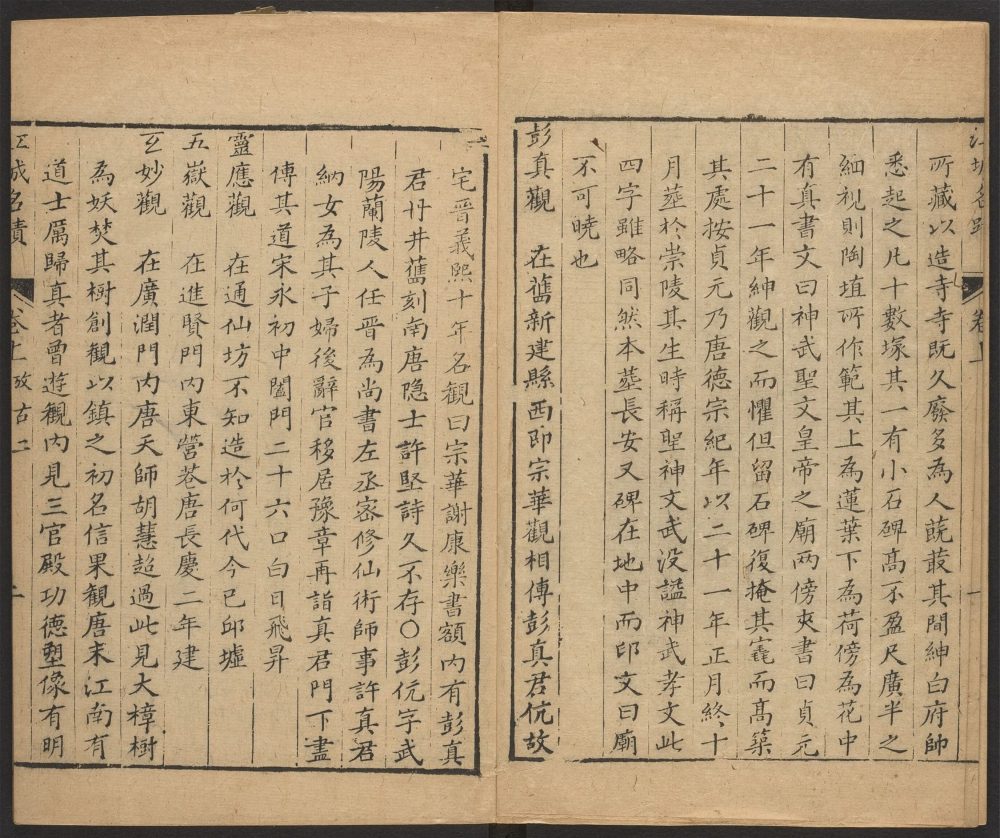 江城名蹟 卷上 一
所藏以造寺寺既久廢多為人蓺叢其間紳白府帥
悉起之凡十數塚其一有小石碑高不盈尺廣半之
細視則陶埴所作範其上為蓮葉下為荷傍為花中
有真書文曰神武聖文皇帝之廟兩傍夾書曰貞元
二十一年紳觀之而懼但留石碑復掩其竁而高築
其處按貞元乃唐德宗紀年以二十一年正月終十
月葬於崇陵其生時稱聖神文武没諡神武孝文此
四字雖略同然本葬長安又碑在地中而卬文曰廟
不可曉也
彭真觀 在舊新建縣西即宗華觀相傳彭真君伉故
宅晉義熙十年名觀曰宗華謝康樂書額内有彭真
君丹井舊刻南唐隐士許堅詩久不存〇彭伉字武
陽蘭陵人任晉為尚書左丞密修仙術師事許真君
納女為其子婦後辭官移居豫章再詣真君門下盡
傳其道宋永初中闔門二十六口白日飛昇
靈應觀 在通仙坊不知造於何代今已邱墟
五嶽觀 在進賢門内東營巷唐長慶二年建
玄妙觀 在廣潤門内唐天師胡慧超過此見大樟樹
為妖焚其樹創觀以鎮之初名信果觀唐末江南有
道士厲歸真者曾遊觀内見三官殿功德塑像有明
江城名蹟 卷上 攷古二 二